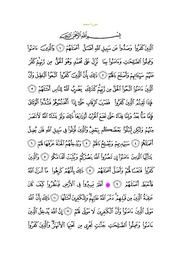 سورة محمد
بِسْمِ اللَّهِ الرَّحْمَٰنِ الرَّحِيمِ
الَّذِينَ كَفَرُوا وَصَدُّوا عَن سَبِيلِ اللَّهِ أَضَلَّ أَعْمَالَهُمْ ١ وَالَّذِينَ ءَامَنُوا
وَعَمِلُوا الصَّالِحَاتِ وَءَامَنُوا بِمَا نُزِّلَ عَلَىٰ مُحَمَّدٍ وَهُوَ الْحَقُّ مِن رَّبِّهِمْ كَفَّرَ
عَنْهُمْ سَيِّئَاتِهِمْ وَأَصْلَحَ بَالَهُمْ ٢ ذَٰلِكَ بِأَنَّ الَّذِينَ كَفَرُوا اتَّبَعُوا الْبَاطِلَ وَأَنَّ
الَّذِينَ ءَامَنُوا اتَّبَعُوا الْحَقَّ مِن رَّبِّهِمْ كَذَٰلِكَ يَضْرِبُ اللَّهُ لِلنَّاسِ أَمْثَالَهُمْ ٣
فَإِذَا لَقِيتُمُ الَّذِينَ كَفَرُوا فَضَرْبَ الرِّقَابِ حَتَّىٰ إِذَا أَثْخَنتُمُوهُمْ فَشُدُّوا الْوَثَاقَ
فَإِمَّا مَنًّا بَعْدُ وَإِمَّا فِدَاءً حَتَّىٰ تَضَعَ الْحَرْبُ أَوْزَارَهَا ذَٰلِكَ وَلَوْ يَشَاءُ اللَّهُ لَانتَصَرَ
مِنْهُمْ وَلَٰكِن لِّيَبْلُوَا بَعْضَكُم بِبَعْضٍ وَالَّذِينَ قُتِلُوا فِي سَبِيلِ اللَّهِ فَلَن يُضِلَّ
أَعْمَالَهُمْ ٤ سَيَهْدِيهِمْ وَيُصْلِحُ بَالَهُمْ ٥ وَيُدْخِلُهُمُ الْجَنَّةَ عَرَّفَهَا لَهُمْ ٦
يَا أَيُّهَا الَّذِينَ ءَامَنُوا إِن تَنصُرُوا اللَّهَ يَنصُرْكُمْ وَيُثَبِّتْ أَقْدَامَكُمْ ٧
وَالَّذِينَ كَفَرُوا فَتَعْسًا لَّهُمْ وَأَضَلَّ أَعْمَالَهُمْ ٨ ذَٰلِكَ بِأَنَّهُمْ كَرِهُوا مَا أَنزَلَ اللَّهُ
فَأَحْبَطَ أَعْمَالَهُمْ ٩ أَفَلَمْ يَسِيرُوا فِي الْأَرْضِ فَيَنظُرُوا كَيْفَ كَانَ
عَاقِبَةُ الَّذِينَ مِن قَبْلِهِمْ دَمَّرَ اللَّهُ عَلَيْهِمْ وَلِلْكَافِرِينَ أَمْثَالُهَا ١٠ ذَٰلِكَ بِأَنَّ اللَّهَ
مَوْلَى الَّذِينَ ءَامَنُوا وَأَنَّ الْكَافِرِينَ لَا مَوْلَىٰ لَهُمْ ١١ إِنَّ اللَّهَ يُدْخِلُ الَّذِينَ
ءَامَنُوا وَعَمِلُوا الصَّالِحَاتِ جَنَّاتٍ تَجْرِي مِن تَحْتِهَا الْأَنْهَارُ وَالَّذِينَ كَفَرُوا